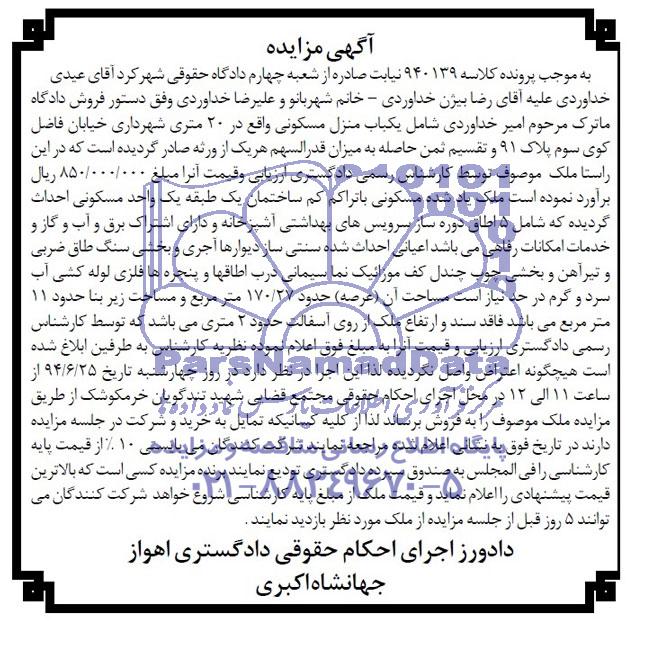 آگهی مزایده
به موجب پرونده کلاسه ۹۴۰۱۳۹ نیابت صادره از شعبه چهارم دادگاه حقوقی شهرکرد آقای عیدی
خداوردی علیه آقای رضا بیژن خداوردی – خانم شهربانو و علیرضا خداوردی وفق دستور فروش دادگاه
ماترک مرحوم امیر خداوردی شامل یکباب منزل مسکونی واقع در ۲۰ متری شهرداری خیابان فاضل
کوی سوم پلاک ۹۱ و تقسیم ثمن حاصله به میزان قدرالسهم هریک از ورثه صادر گردیده است که در این
راستا ملک موصوف توسط کارشناس رسمی دادگستری ارزیابی وقیمت آنرا مبلغ ۸۵۰/۰۰۰/۰۰۰ ریال
برآورد نموده است ملک یاد شده مسکونی باتراکم کم ساختمان یک طبقه یک واحد مسکونی احداث
گردیده که شامل ۵ اطاق دوره ساز سرویس های بهداشتی آشپزخانه و دارای اشتراک برق و آب و گاز و
خدمات امکانات رفاهی می باشد اعیانی احداث شده سنتی ساز دیوارها آجری و بخشی سنگ طاق ضربی
و تیرآهن و بخشی چوب چندل کف موزائیک نما سیمانی درب اطاقها و پنجره ها فلزی لوله کشی آب
سرد و گرم در حد نیاز است مساحت آن (عرصه) حدود ۱۷۰/۲۷ متر مربع و مساحت زیر بنا حدود ۱۱
متر مربع می باشد فاقد سند و ارتفاع ملک از روی آسفالت حدود ۲ متری می باشد که توسط کارشناس
رسمی دادگستری ارزیابی و قیمت آنرا به مبلغ فوق اعلام نموده نظریه کارشناسی به طرفین ابلاغ شده
است هیچگونه اعتراض واصل نگردیده لذا این اجرا در نظر دارد در روز چهارشنبه تاریخ ۹۴/۶/۲۵ از
ساعت ۱۱ الی ۱۲ در محل اجرای احکام حقوقی مجتمع قضایی شهید تندگویان خرمکوشک از طریق
مزایده ملک موصوف را به فروش برساند لذا از کلیه کسانیکه تمایل به خرید و شرکت در جلسه مزایده
دارند در تاریخ فوق به نشانی اعلام شده مراجعه نمایند شرکت کنندگان می بایستی ۱۰ ٪ از قیمت پایه
کارشناسی را فی المجلس به صندوق سپرده دادگستری تودیع نمایند برنده مزایده کسی است که بالاترین
قیمت پیشنهادی را اعلام نماید و قیمت ملک از مبلغ پایه کارشناسی شروع خواهد شد شرکت کنندگان می
توانند ۵ روز قبل از جلسه مزایده از ملک مورد نظر بازدید نمایند .
دادورز اجرای احکام حقوقی دادگستری اهواز
جهانشاه اکبری
ParsNamadData
پایگاه اطلاع رسانی مناقصه و مزایده
۰۲۱-۸۸۳۴۹۶۷۰-۵